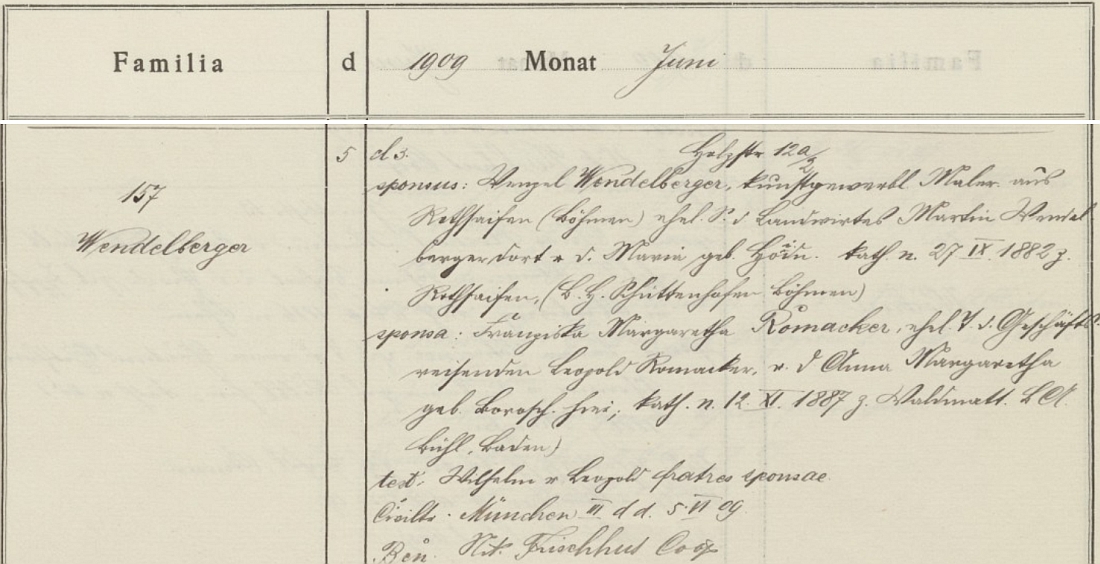 Familia d 1909 Monat Juni
5 d. 5. Holzstr 12a/2
157 sponsus: Wenzel Wendelberger, kunstgewerbl Maler. aus
Rothsaifen (Böhmen) ehel. S. d. Landwirtes Martin Wendel-
Wendelberger
berger dort u d. Maria geb. kath. n. 27 IX. 1882 z.
Rothsaifen, (B. H. Schüttenhofen Böhmen)
sponsa: Franziska Margaretha Romacker, ehel. T. d. Geschäfts-
reisenden Leopold Romacker, u. d Anna Margaretha
geb. hier; kath. n. 12. XI. 1887 z. Waldmatt. B A.
Bühl, Baden)
test: Wilhelm u Leopold fratres sponsae
Civiltr. München III d d. 5 VI 09
Ben. Frischhut Coop